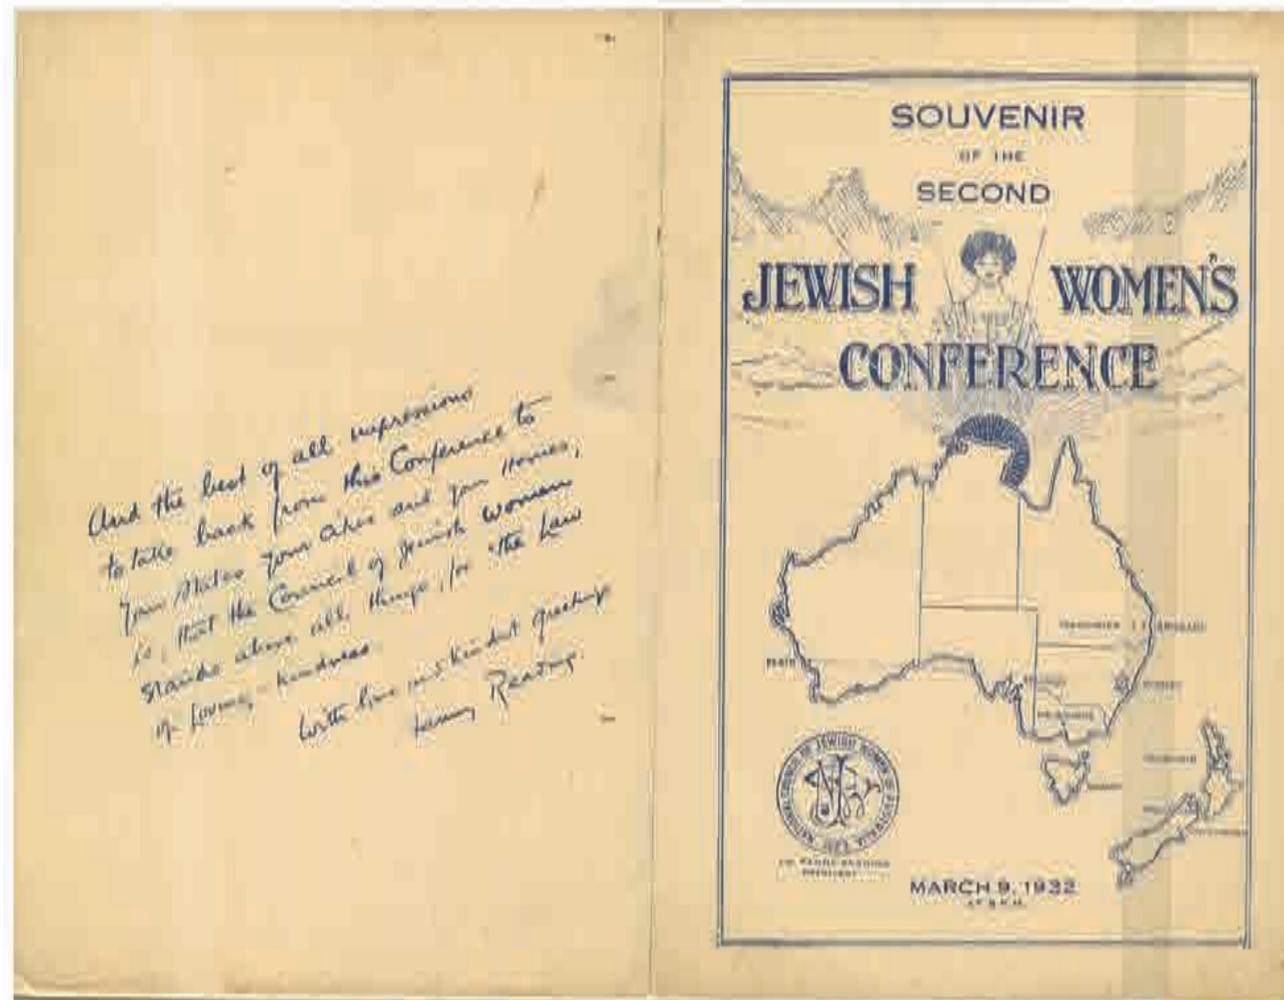 And the best of all impressions
to take back from this Conference to
Your States Your cities and your Homes,
is, that the Council of Jewish women
stands above all things, for the Law
of Loving-kindness.
With love and kindest greetings
Fanny Reading.
SOUVENIR
OF THE
SECOND
JEWISH WOMEN'S
CONFERENCE
PERTH
BRISBANE
SYDNEY
MELBOURNE
NATIONAL COUNCIL OF JEWISH WOMEN OF AUSTRALIA
DR. FANNY READING
PRESIDENT
MARCH 9, 1932
AT 8 P.M.